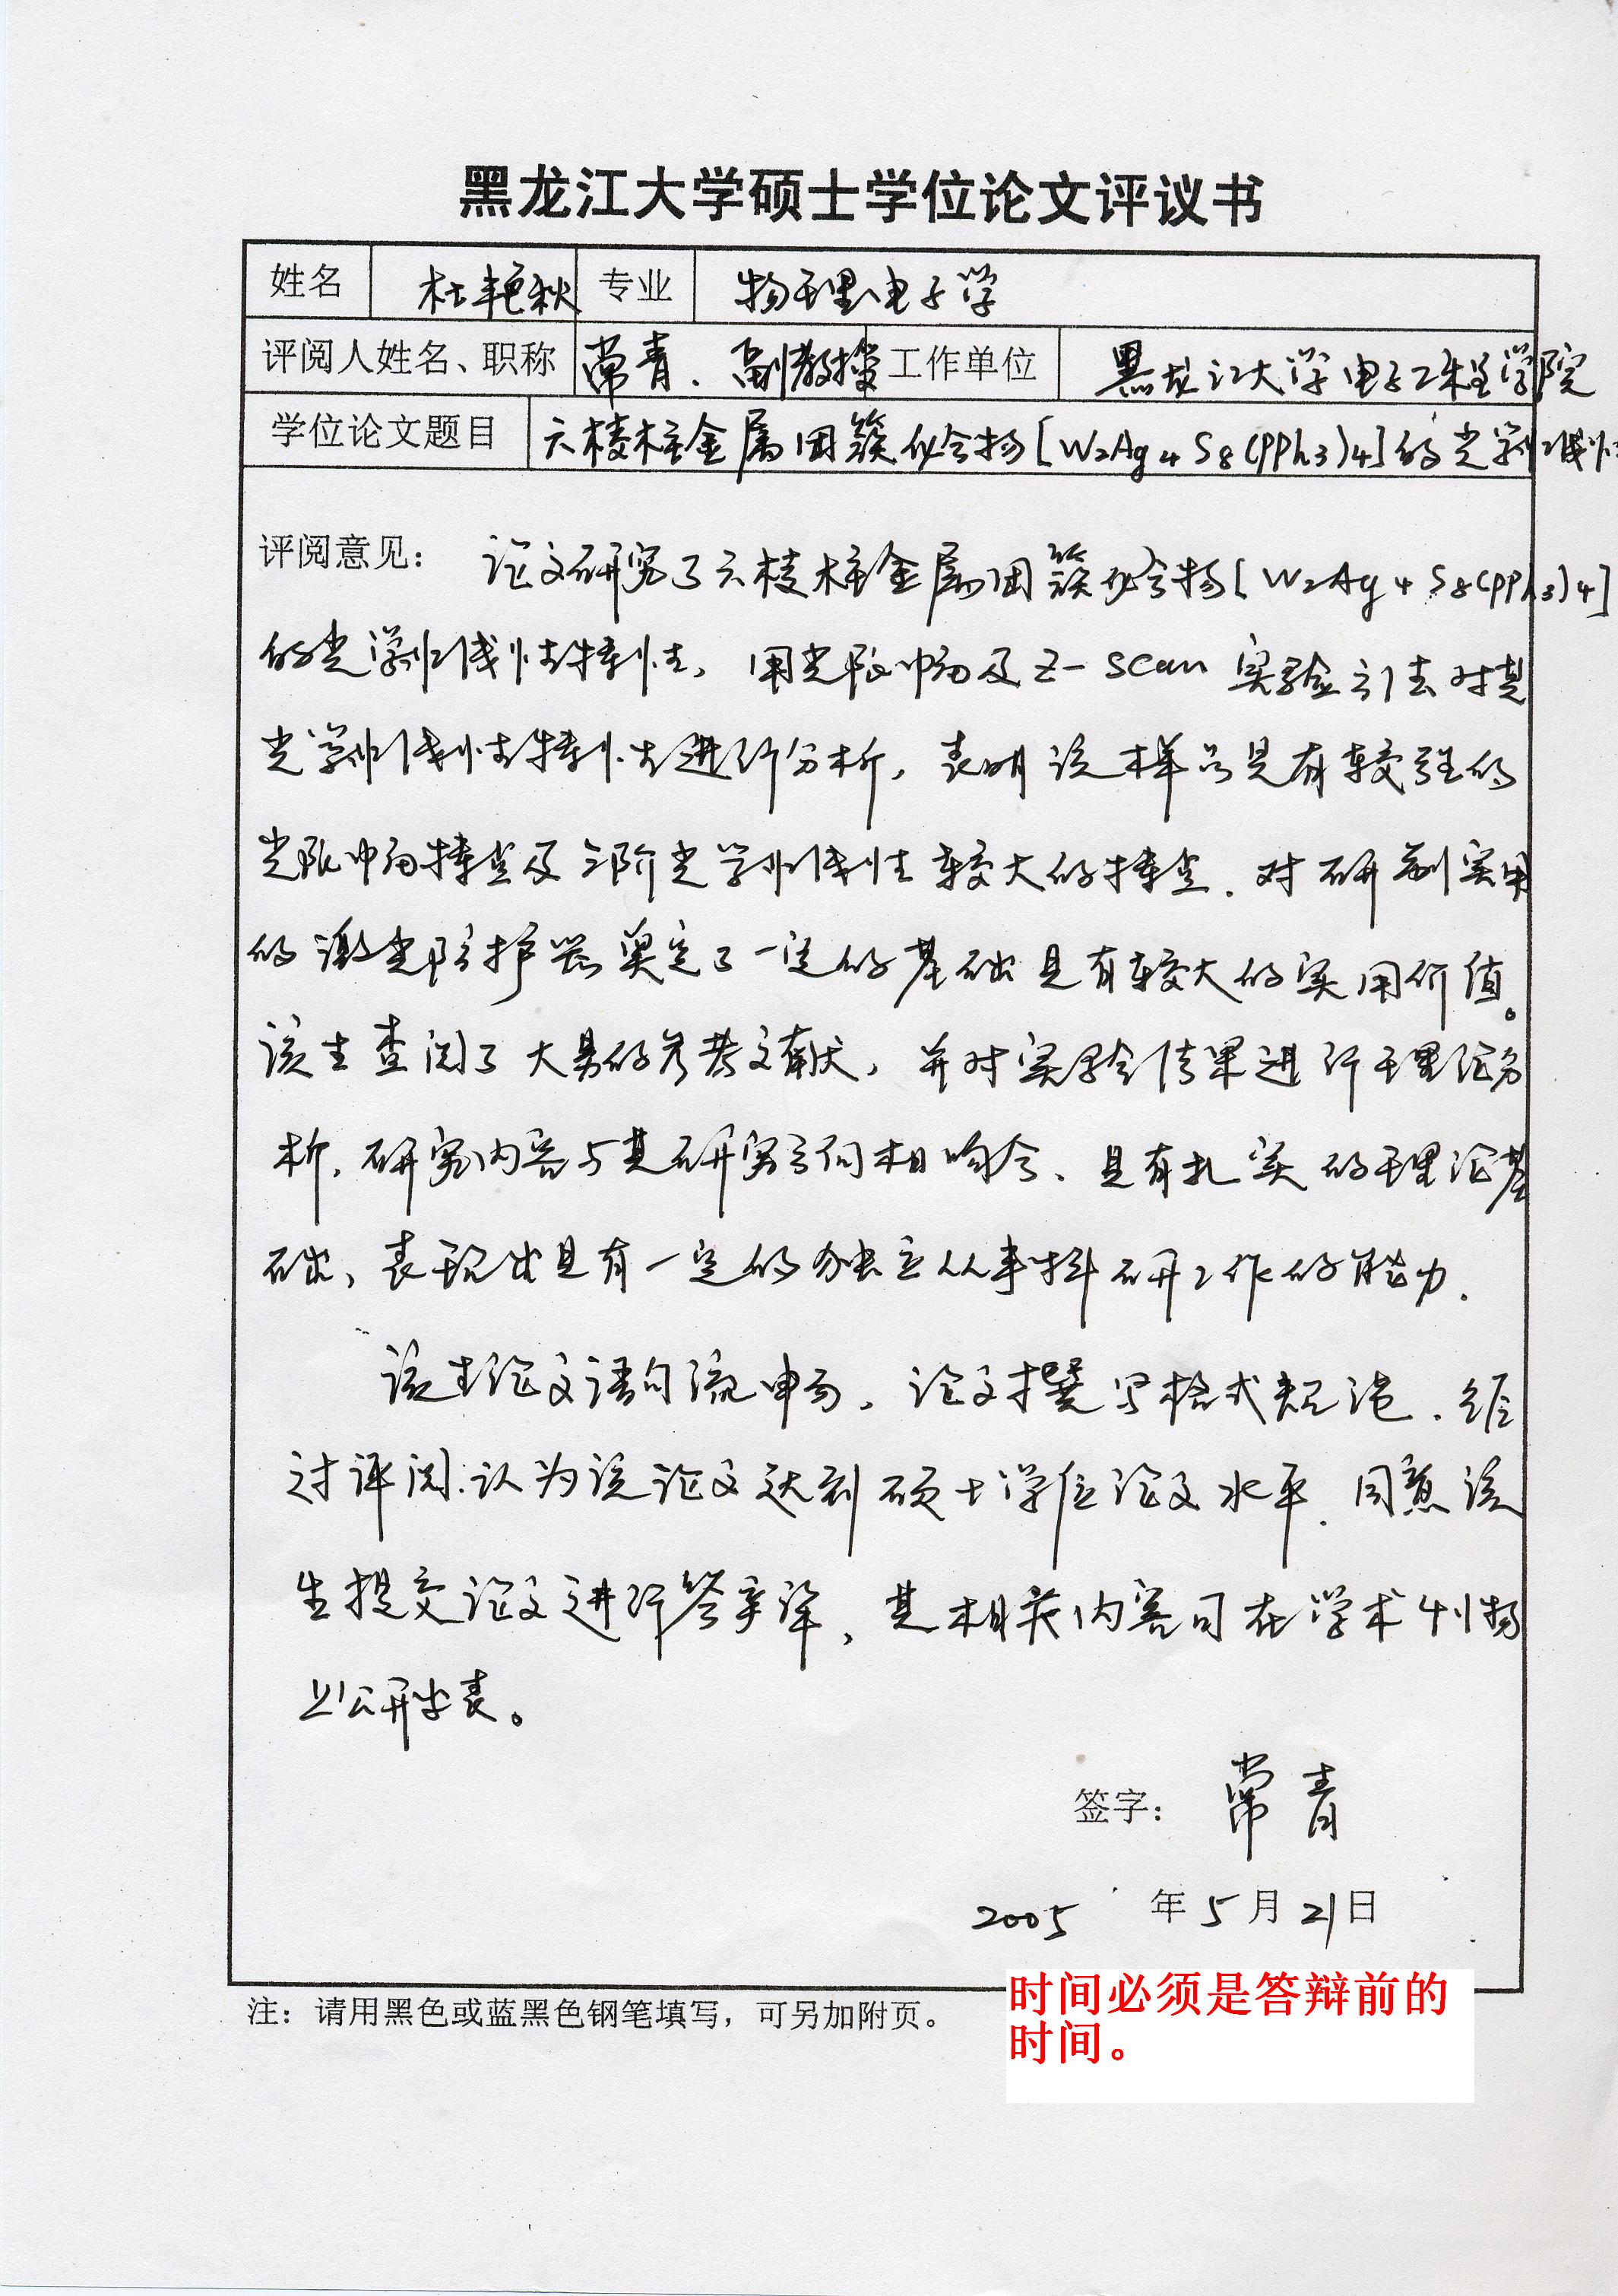 黑龙江大学硕士学位论文评议书
姓名 杜艳秋 专业 物理电子学
评阅人姓名、职称 常青.副教授 工作单位 黑龙江大学电子工程学院
学位论文题目 六棱柱金属团簇化合物[W2Ag4S8(PPh3)4]的光学非线性
评阅意见： 论文研究了六棱柱金属团簇化合物[W2Ag4S8(PPh3)4]
的光学非线性特性，用光限幅及Z-scan实验方法对其
光学非线性特性进行分析，表明该样品具有较强的
光限幅特性及三阶光学非线性较大的特性.对研制实用
的激光防护器奠定了一定的基础具有较大的实用价值。
该生查阅了大量的参考文献，并对实验结果进行理论分
析.研究内容与其研究方向相吻合、具有扎实的理论基
础、表现出具有一定的独立从事科研工作的能力.
该生论文语句流畅，论文撰写格式规范.经
过评阅.认为该论文达到硕士学位论文水平.同意该
生提交论文进行答辩，其相关内容可在学术刊物
上公开发表。
签字： 常青
2005 年 5 月 21 日
注：请用黑色或蓝黑色钢笔填写，可另加附页。
时间必须是答辩前的
时间。